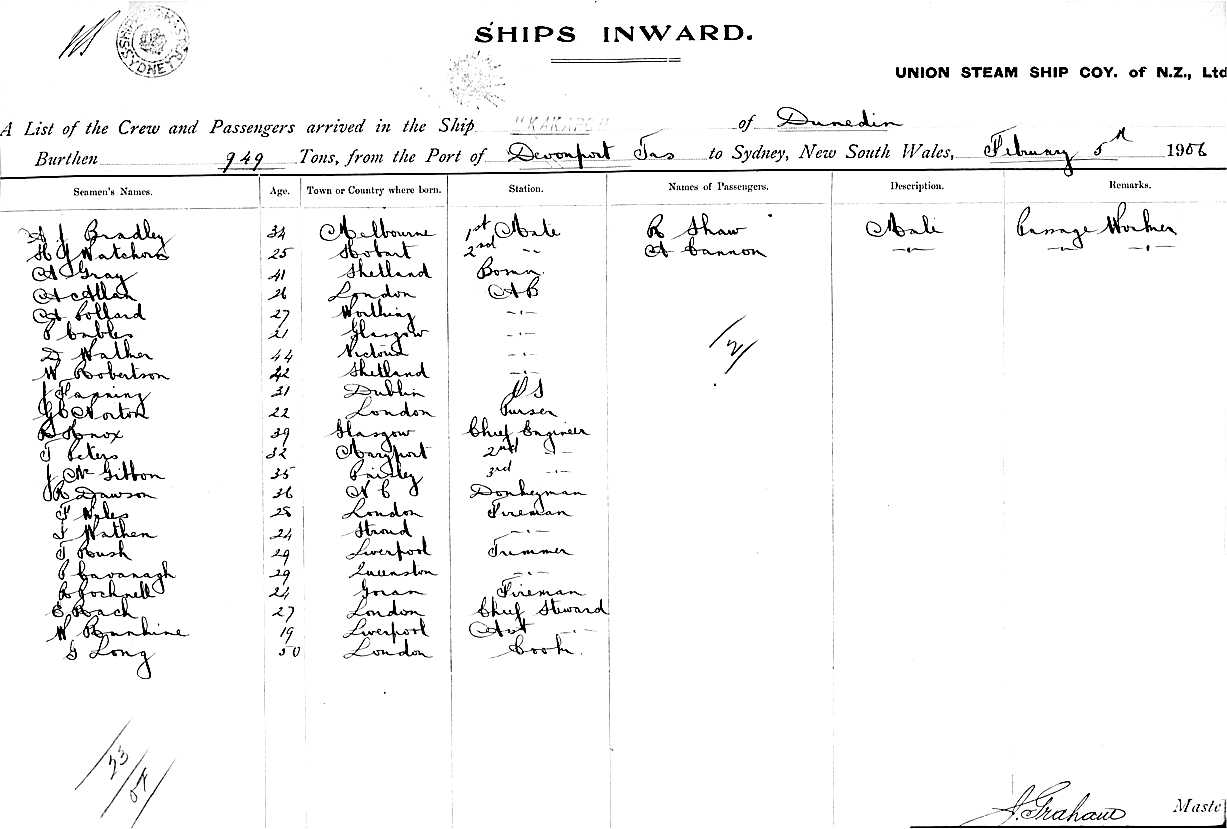 SHIPS INWARD.
UNION STEAM SHIP COY. of N.Z., Ltd
A List of the Crew and Passengers arrived in the Ship "KAKAPO" of Dunedin
Burthen 949 Tons, from the Port of Devonport Tas to Sydney, New South Wales, February 5th 1906
Seamen's Names. Age. Town or Country where born. Station. Names of Passengers. Description. Remarks.
A J Bradley 34 Melbourne 1st Mate R Shaw Male Passage Worker
H J Watchorn 25 Hobart 2nd -"- A Cannon -"- -"- -"-
A Gray 41 Shetland Bosun
A McAllan 26 London AB
A Pollard 27 Worthing -"-
P Cables 21 Glasgow -"-
D Walker 44 Victoria -"-
W Robertson 42 Shetland -"-
J Fanning 31 Dublin OS
G C Norton 22 London Purser
R Knox 39 Glasgow Chief Engineer
T Peters 32 Maryport 2nd -"-
J McGibbon 35 Paisley 3rd -"-
R Dawson 36 Donkeyman
F Wyles 28 London Fireman
F Wathen 24 Stroud -"-
T Rush 29 Liverpool Trimmer
P Cavanagh 29 Queenston -"-
24 Fireman
E Rach 27 London Chief Steward
W Rankine 19 Liverpool Ast -"-
G Long 50 London Cook
/2/
/23/
07/
J. Graham Maste